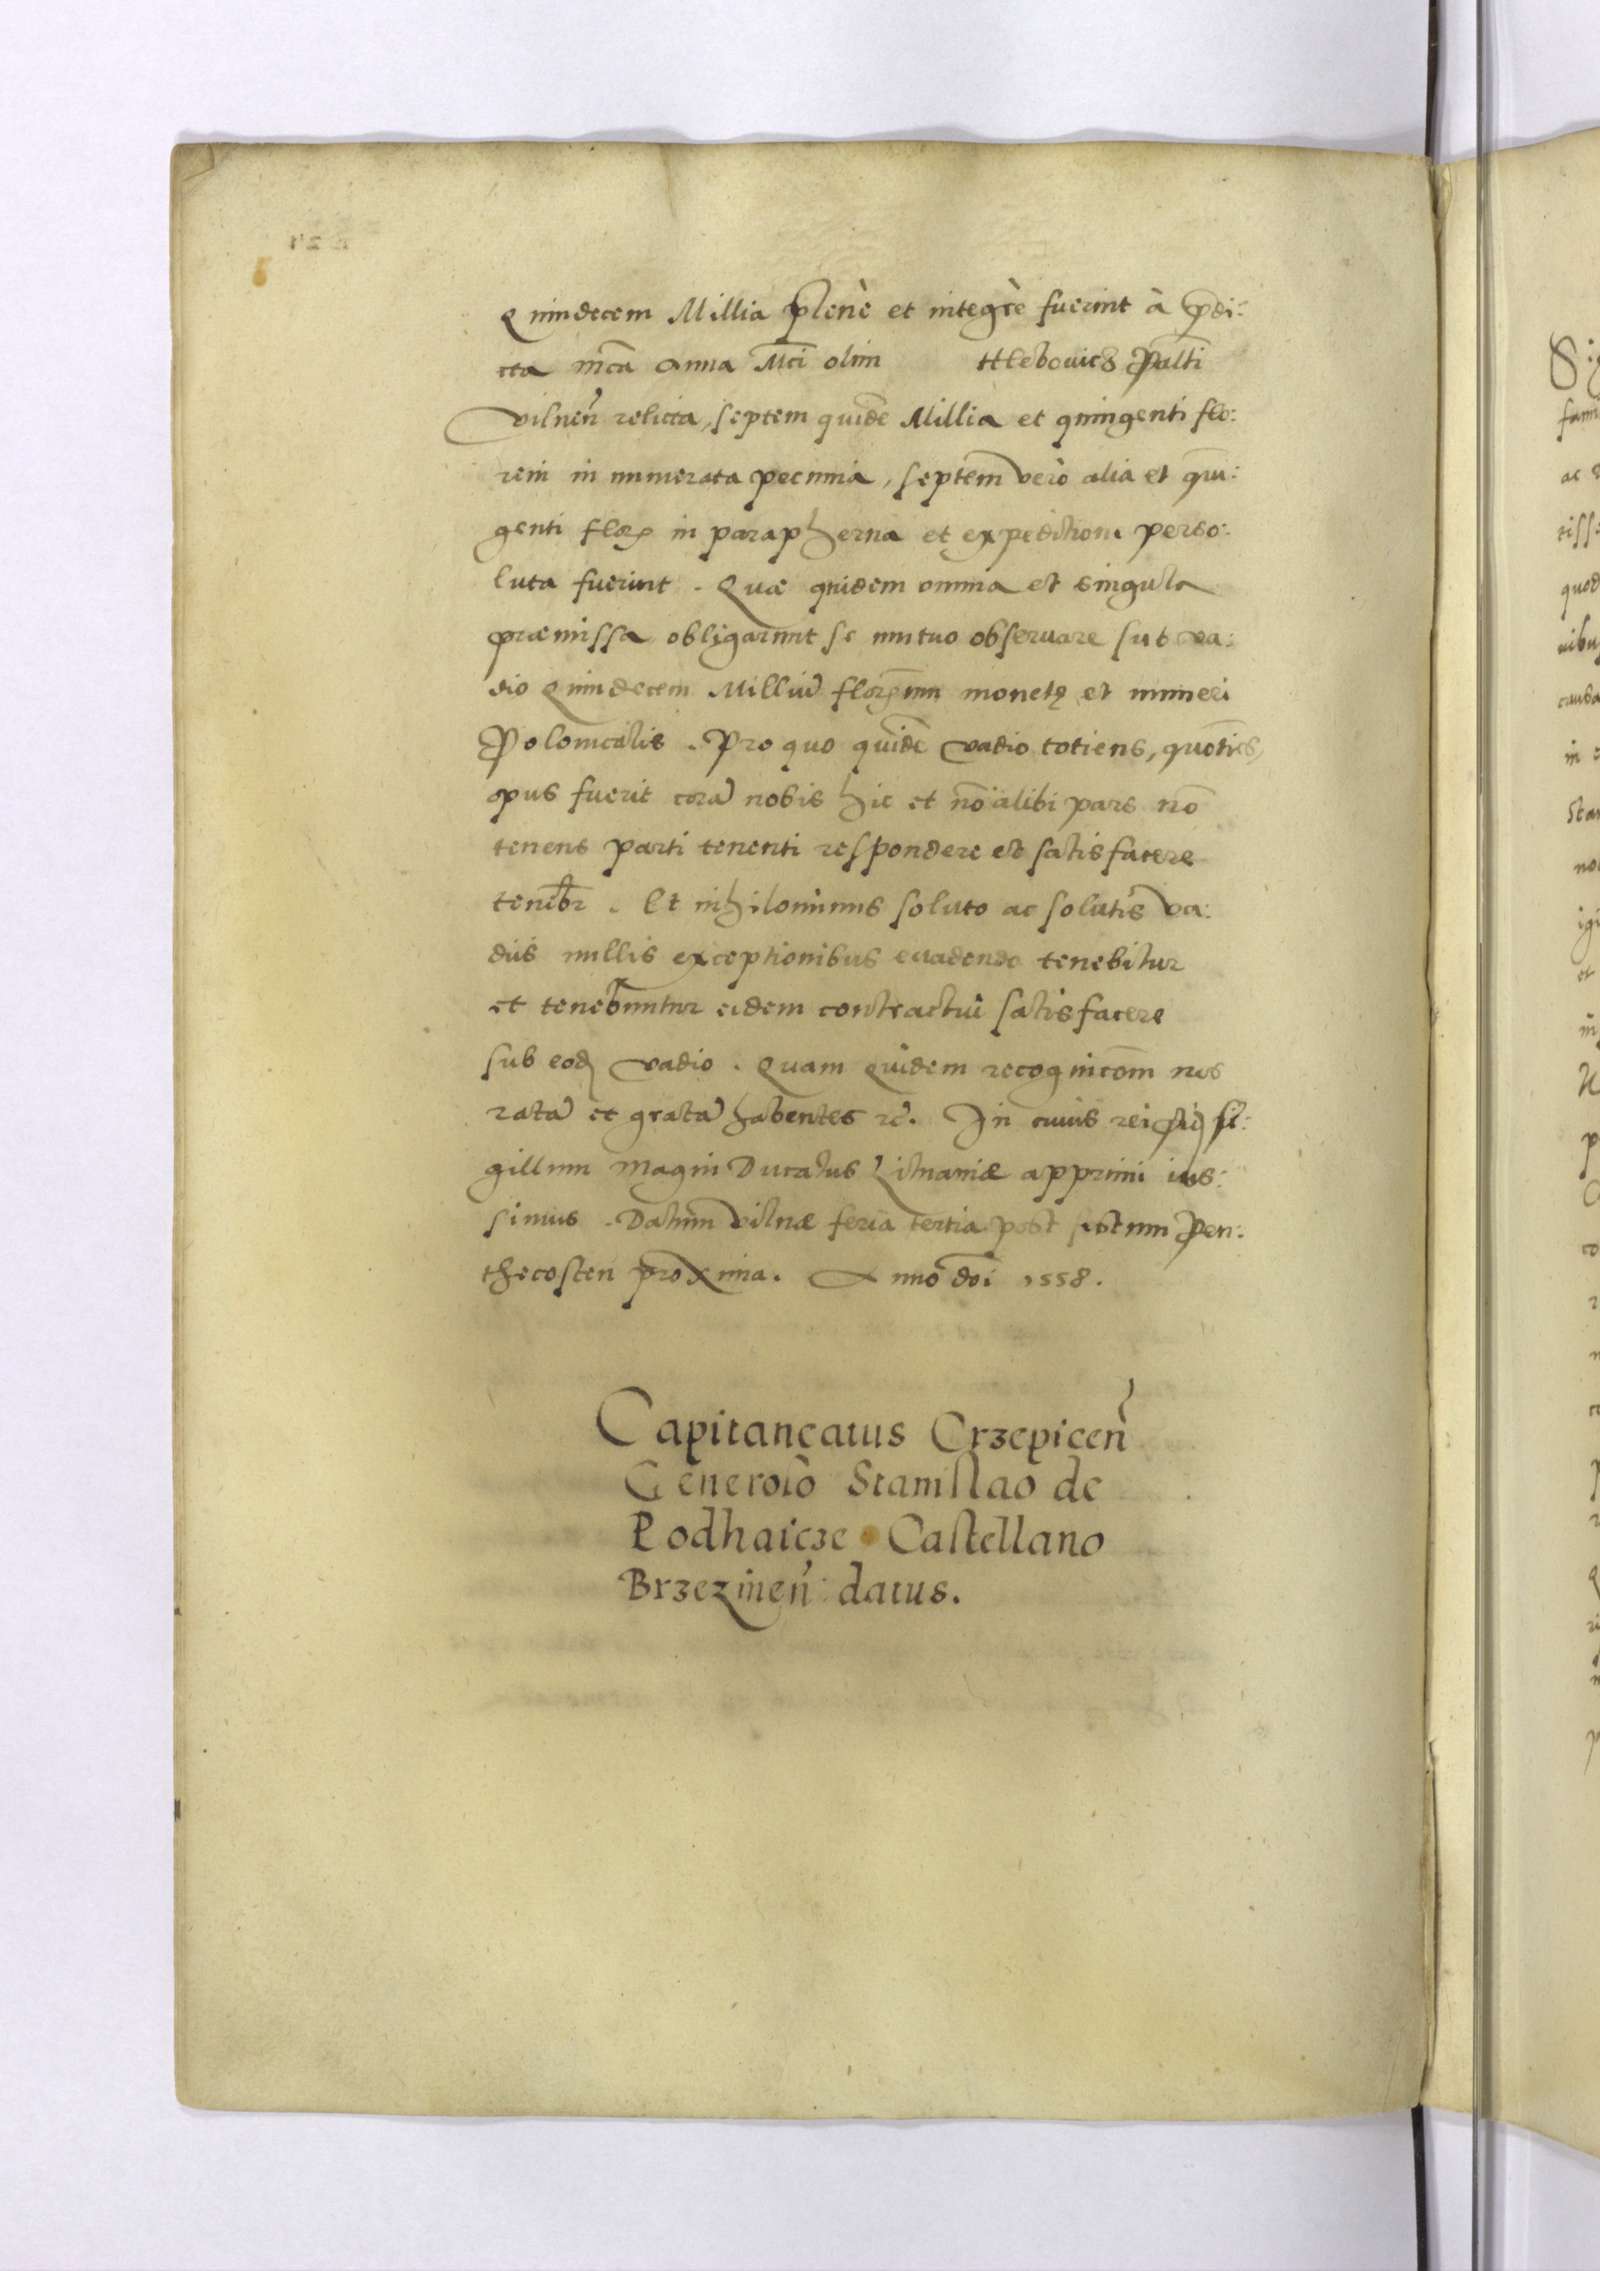 Quindecem Millia plenè et integrè fuerint à p̄di:
cta m̄ca Anna M̄ci olim Hlebouicz Palt̄i
Vilnen̄ relicta, septem quidē Millia et quingenti flo:
reni in numerata pecunia, septem verò alia et quin:
genti flor̄ in parapherna et expeditione perso:
luta fuerint. Quæ quidem omnia et singula
præmissa obligarunt se mutuo obseruare sub va:
dio Quindecem Milliū flor̄enum monetę et numeri
Polonicalis. Pro quo quidē vadio totiens, quotiēs,
opus fuerit corā nobis hic et nō alibi pars nō
tenens parti tenenti respondere et satisfacere
tenebr̄. Et nihilominus soluto ac solutis va:
diis nullis exceptionibus euadendo tenebitur
et tenebuntur eidem contractui satisfacere
sub eod̄ vadio. Quam Quidem recognic̄om nos
ratā et gratā habentes rc̄. In cuius rei fid̄ si:
gillum Magni Ducatus Lituaniæ apprimi ius:
simus. Datum Vilnæ feria tertia post festum Pen:
thecosten proxima. Anno dōi 1558.
Capitaneatus Crzepicen̄
Generoso Stanislao de
Podhaicze Castellano
Brzezinen̄ datus.